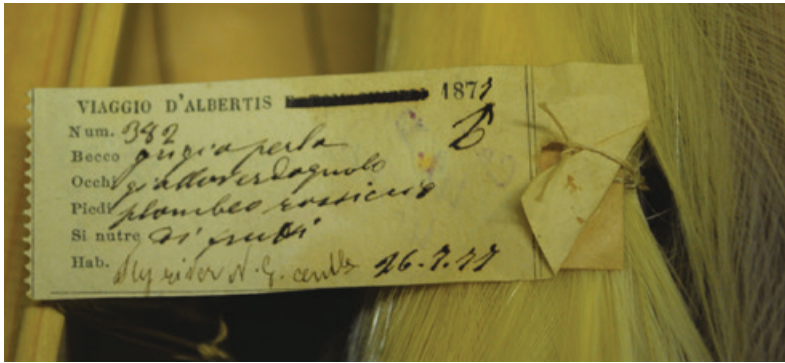 VIAGGIO D'ALBERTIS 1877
Num. 382
Becco grigio perla
Occhi giallo verdognolo
Piedi plombeo rossiccio
Si nutre di frutti
Hab. Fly river N. G. centle 26.7.77